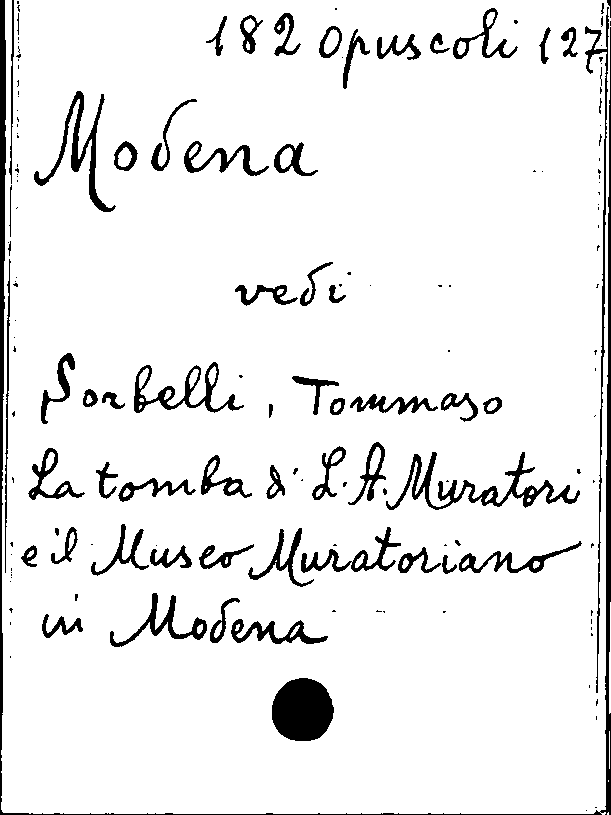 182 Opuscoli 127
Modena
vedi
Sorbelli, Tommaso
La tomba di L. A. Muratori
e il Museo Muratoriano
in Modena